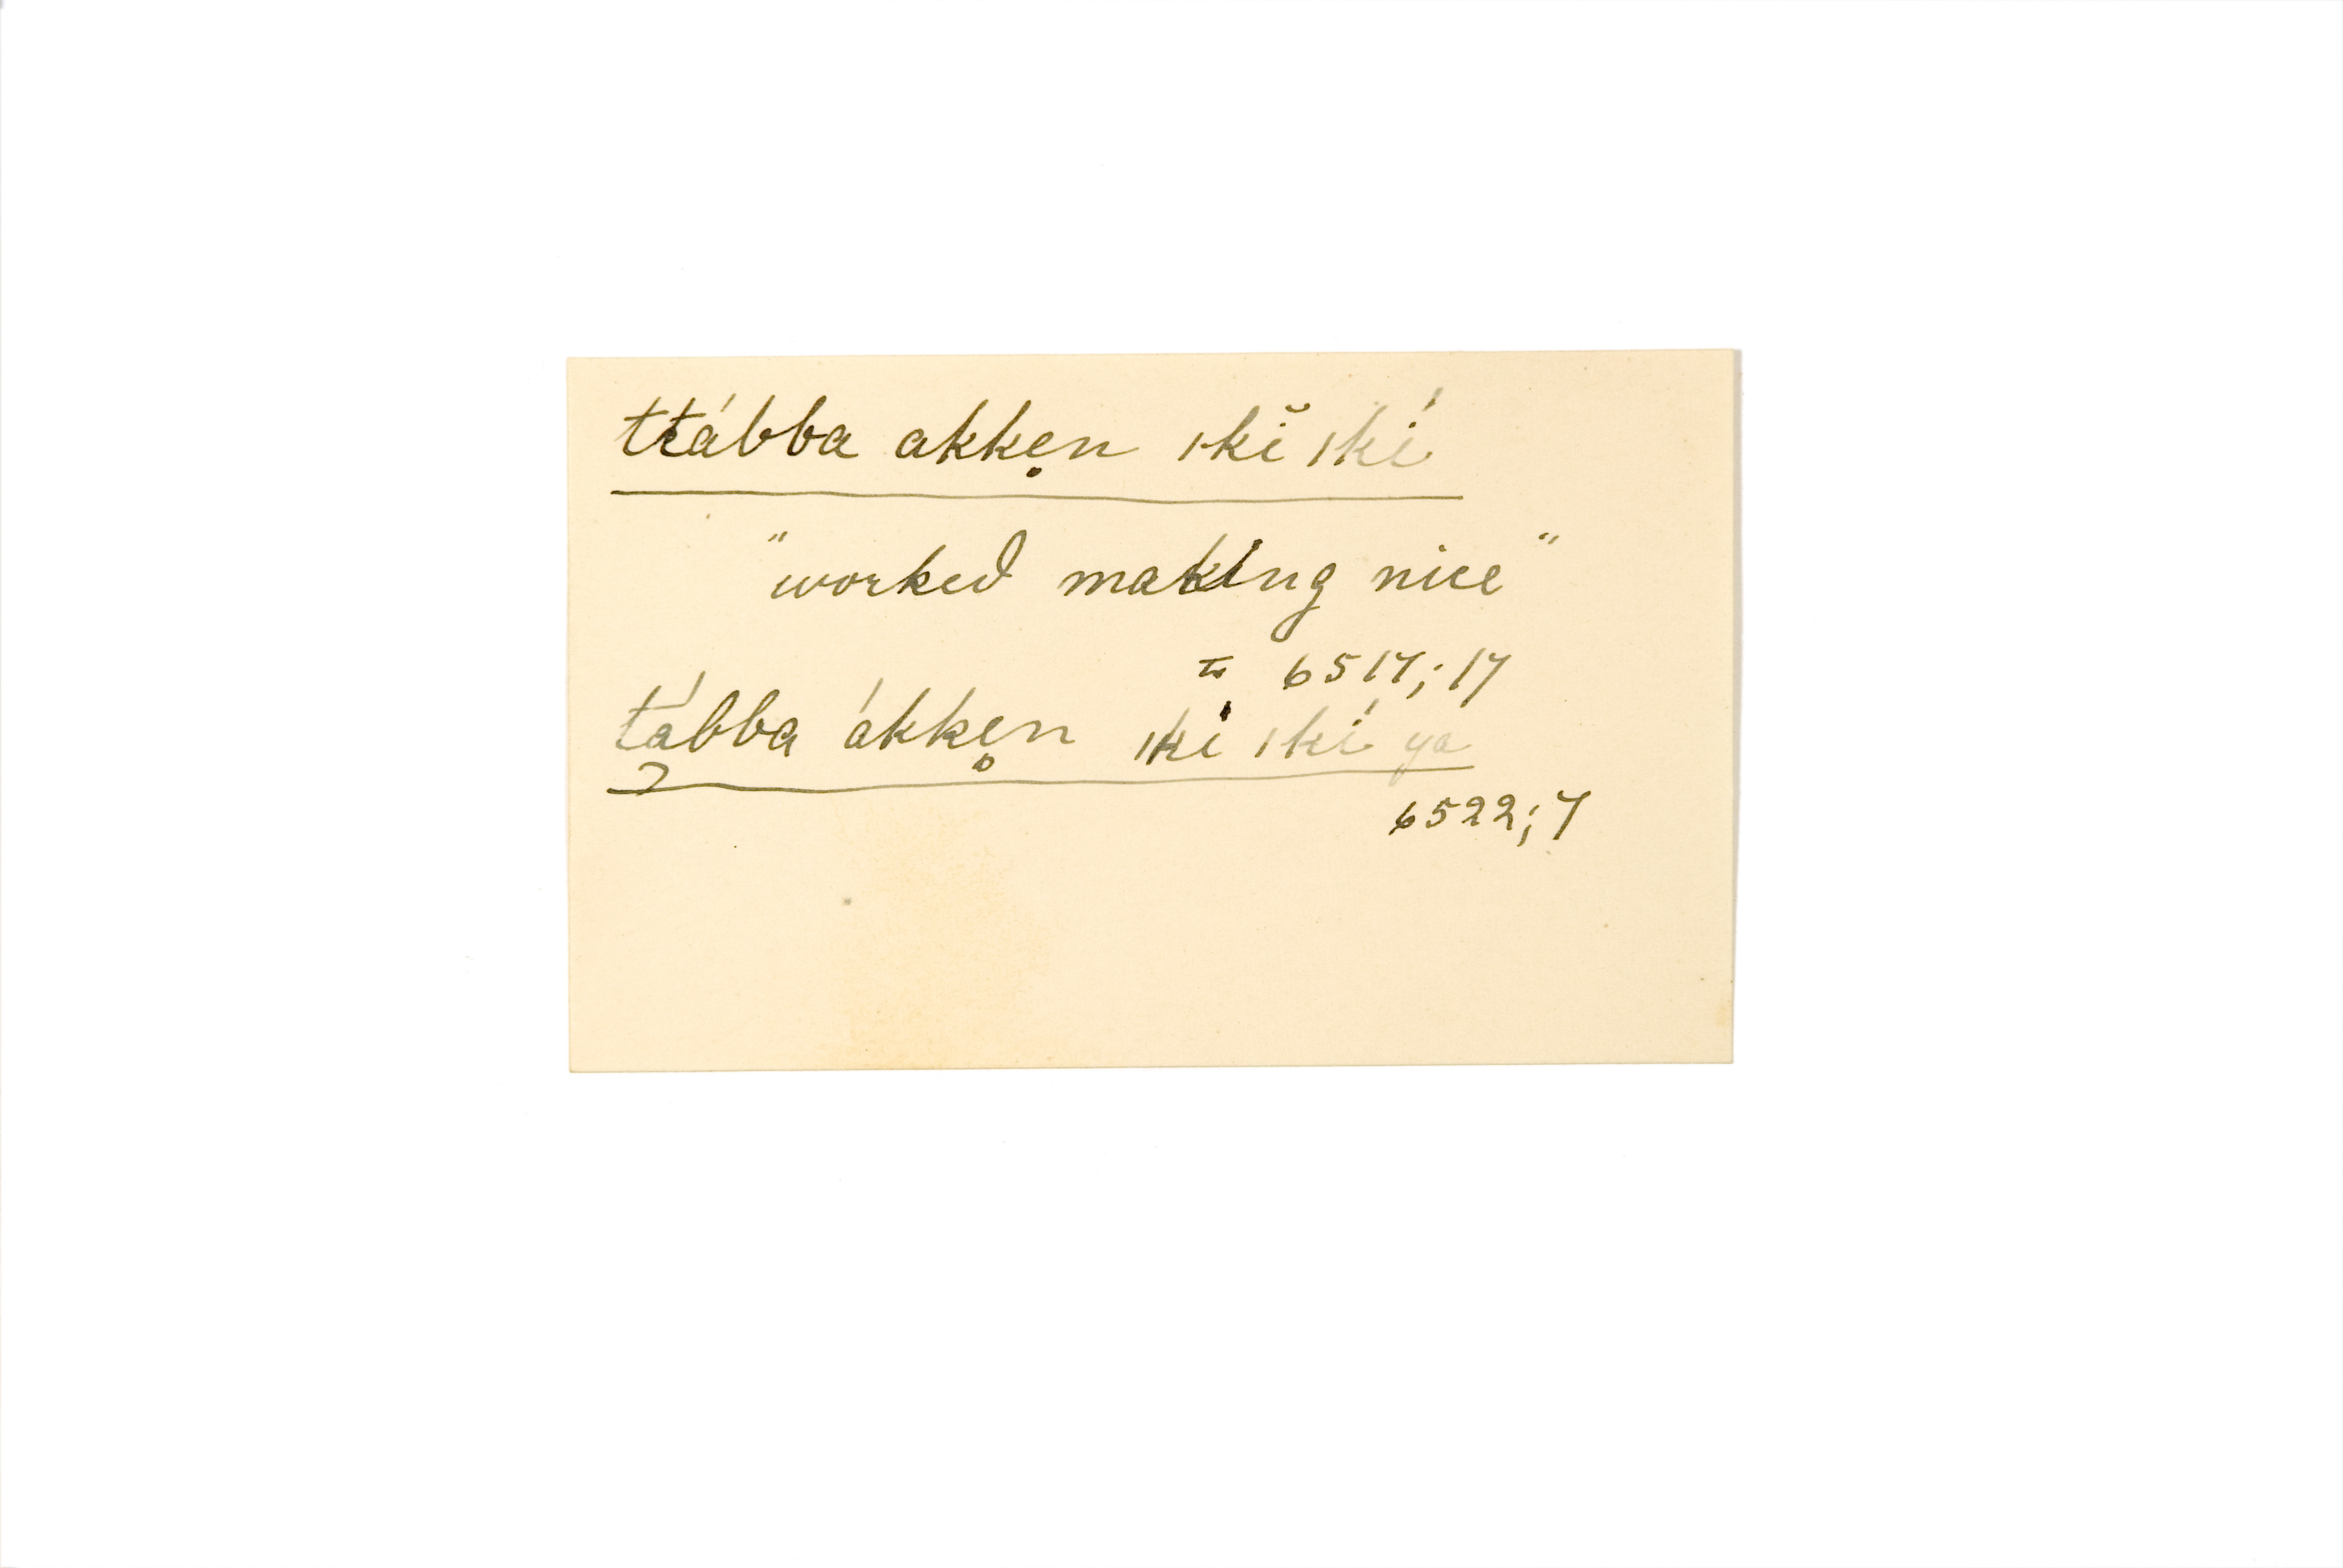 ttábba akkẹn ikĭ ikí
"worked making nice"
= 6517; 17
tábba ákkẹn iki ikí ya
6522; 7